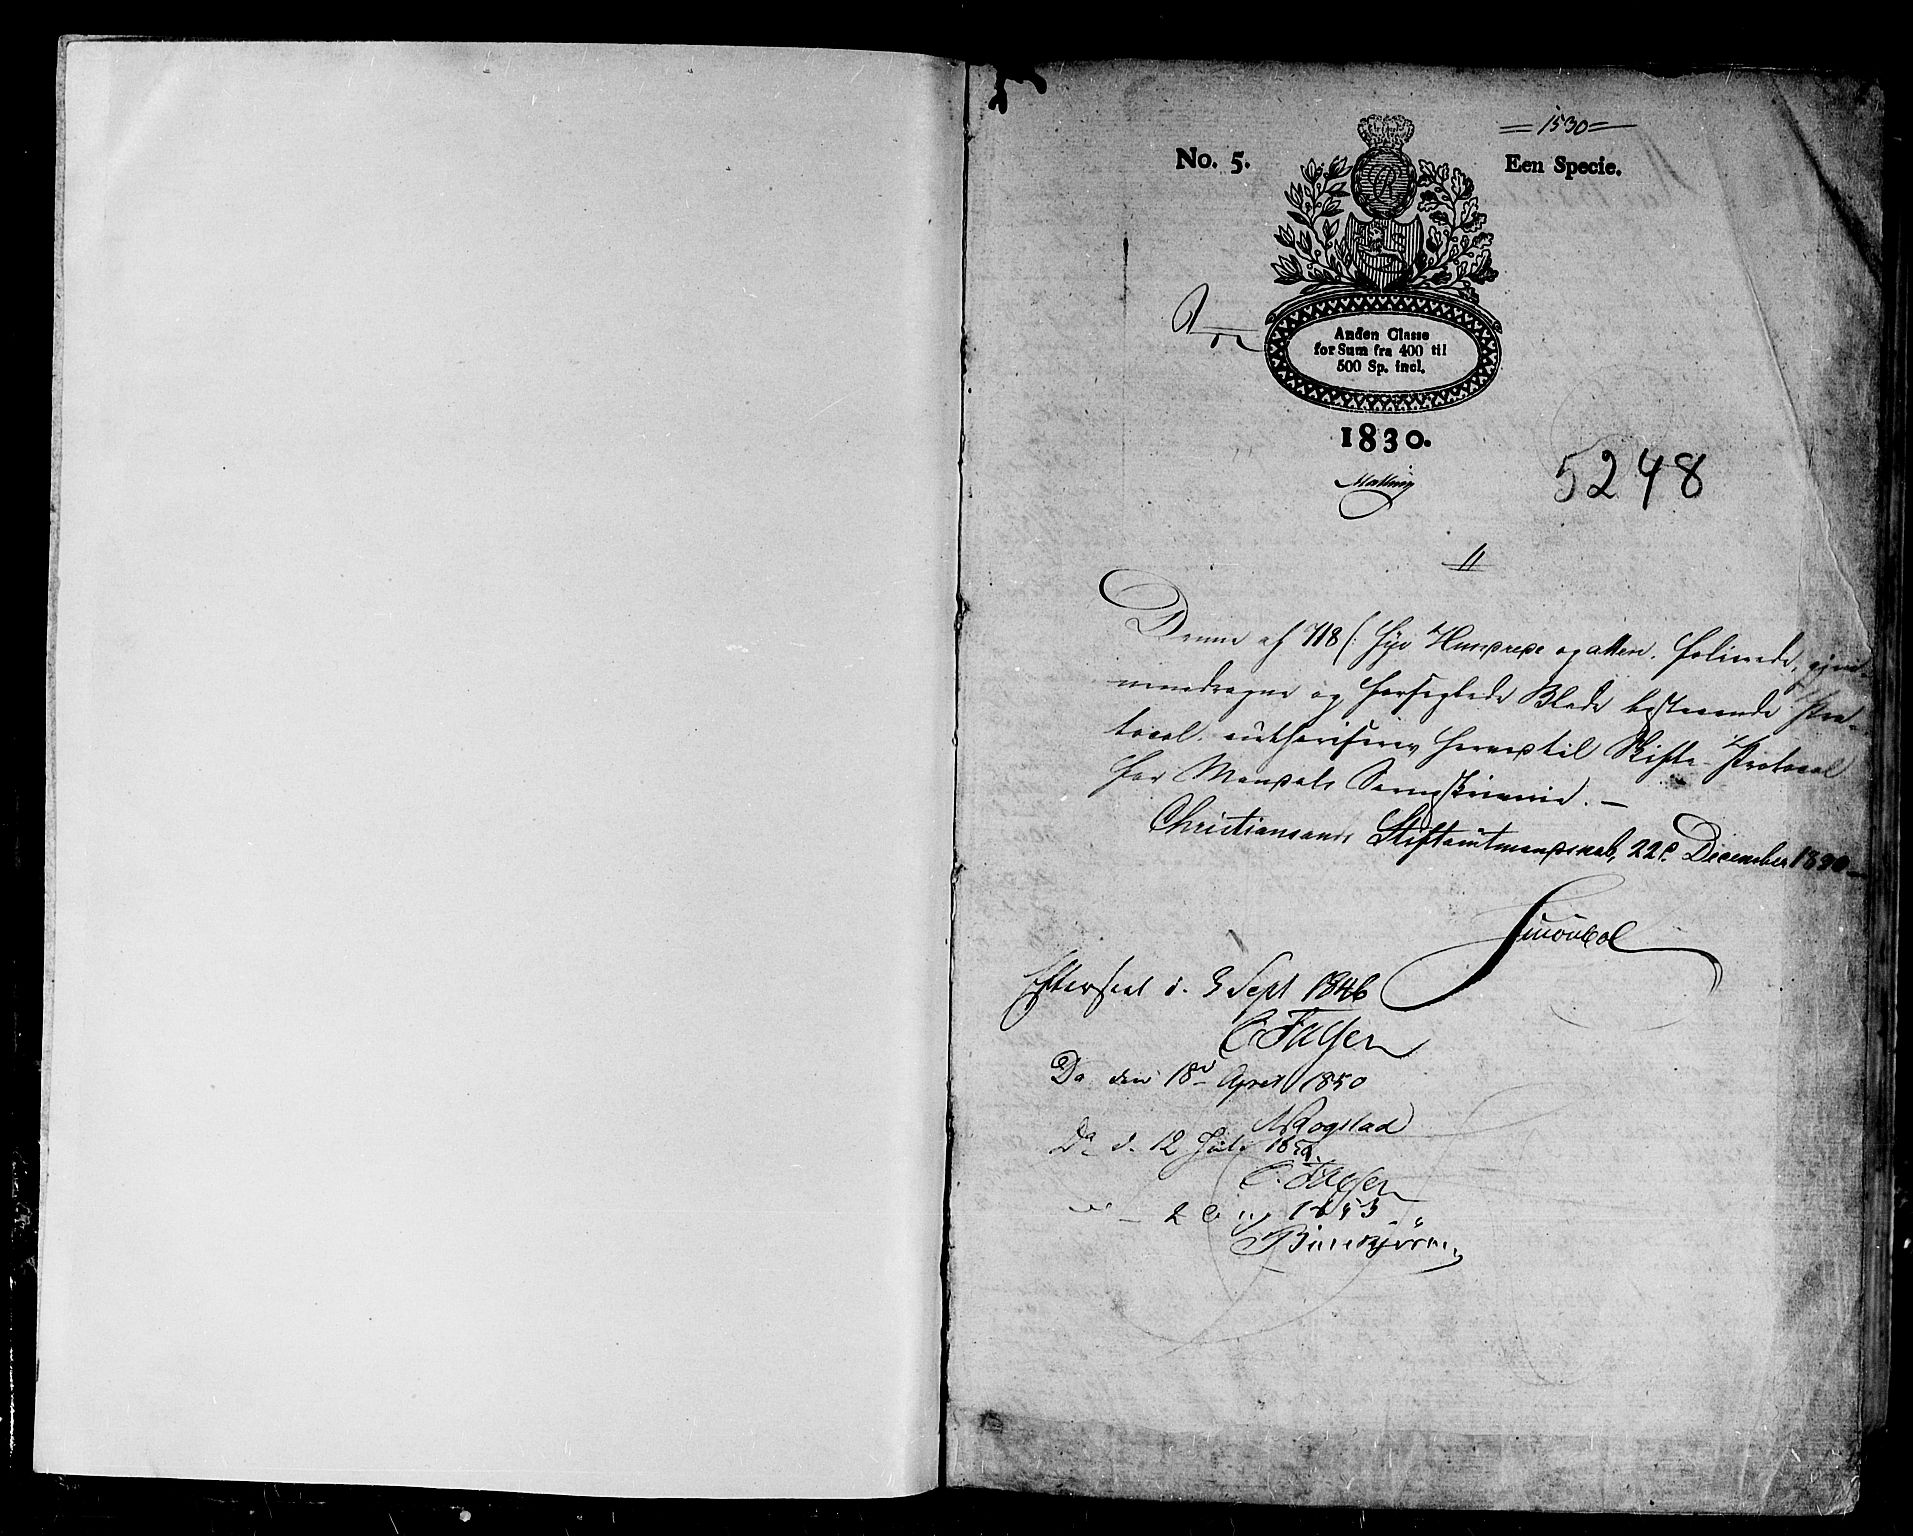 =1530=
No. 5.
Een Specie.
R
Anden Classe
for Sum fra 400 til
500 Sp. incl.
1830.
Malling
5248
Denne af 718 (: Syv Hundrede og atten, folierede, gjen-
nemdragne og forseglede Blade bestaaende Pro-
tocol, authoriseres herved til Skifte-Protocol
for Mandals Sorenskriverie. —
Christiansands Stiftamtmandskab, 22de December 1830 —
Efterseet d. 3 Sept 1846
C Falsen
Do den 18de April 1850
Rogstad
Do d. 12 Juli 185
C. Falsen
1853